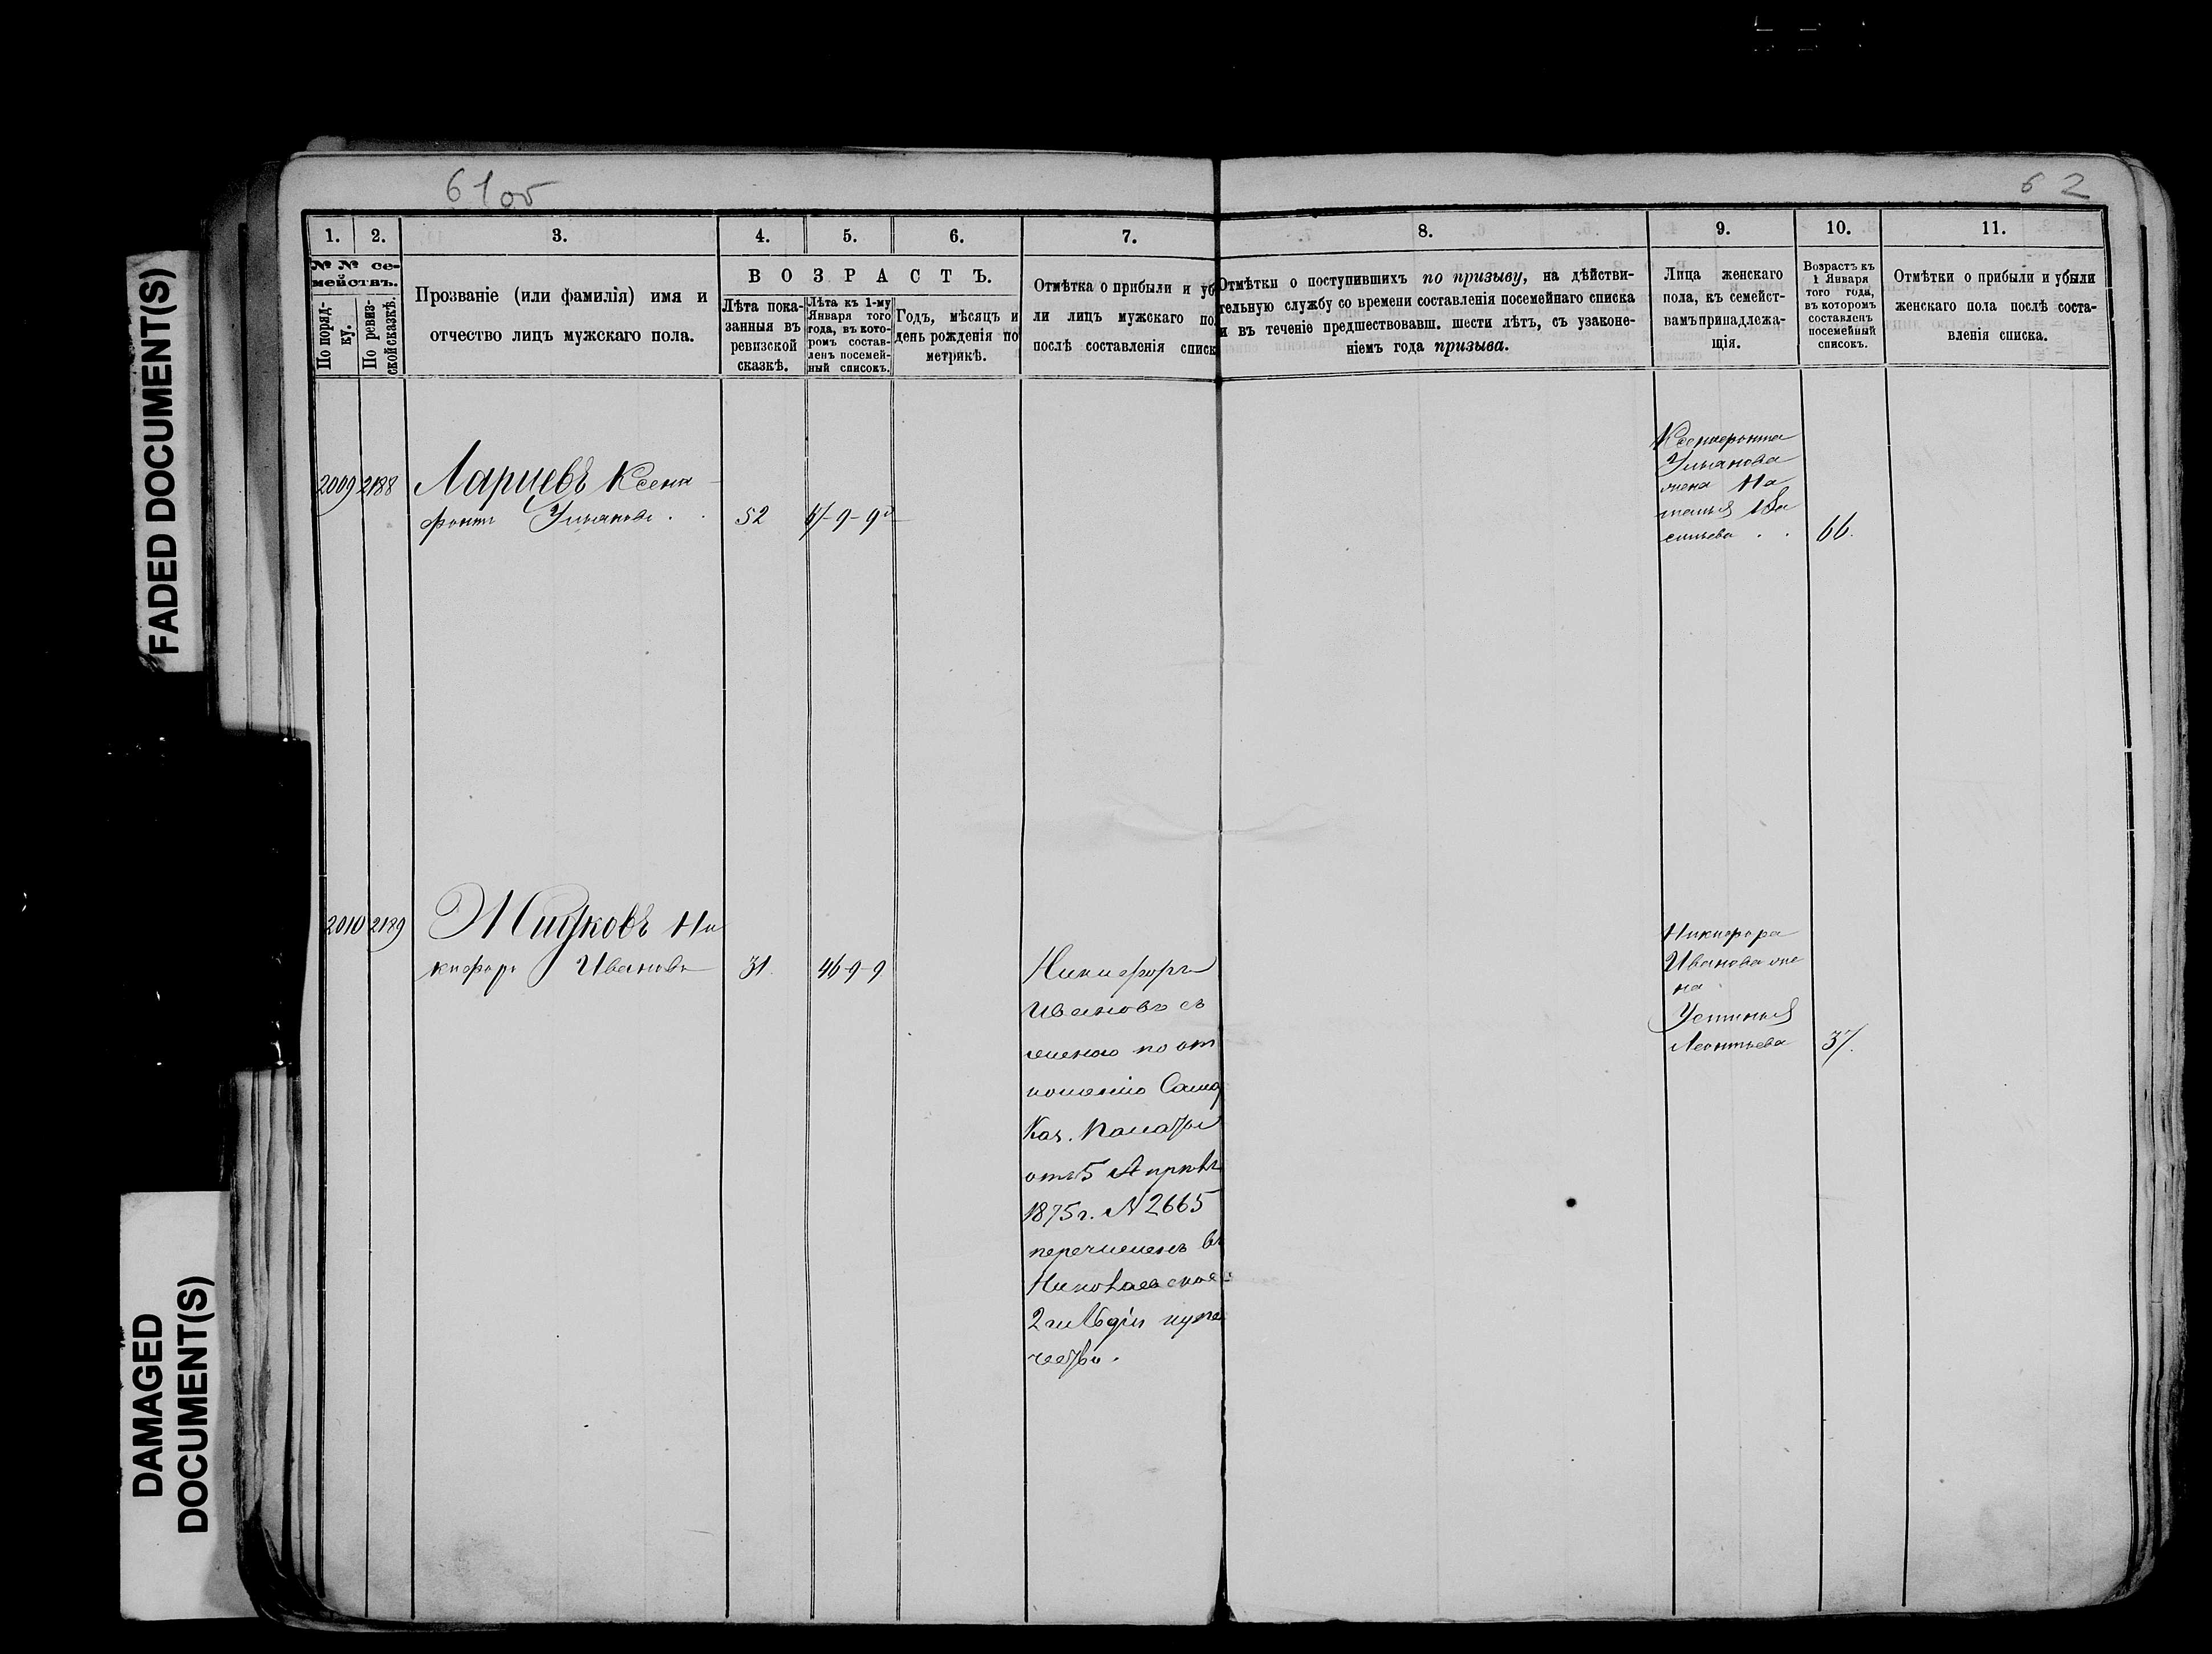 FADED DOCUMENT(S)
DAMAGED
DOCUMENT(S)
61об
62
1. 2. 3. 4. 5. 6. 7. 8. 9. 10. 11.
№ № се-
мействъ.
По поряд-
ку.
По ревиз-
ской сказкѣ.
Прозваніе (или фамилія) имя и
отчество лицъ мужскаго пола.
ВОЗРАСТЪ.
Лѣта пока-
занныя въ
ревизской
сказкѣ.
Лѣта къ 1-му
Января того
года, въ кото-
ромъ состав-
ленъ посемей-
ный списокъ.
Годъ, мѣсяцъ и
день рожденія по
метрикѣ.
Отмѣтка о прибыли и уб
ли лицъ мужскаго по
послѣ составленія списк
Отмѣтки о поступившихъ по призыву, на дѣйстви-
тельную службу со времени составленія посемейнаго списка
и въ теченіе предшествовавш. шести лѣтъ, съ узаконе-
ніемъ года призыва.
Лица женскаго
пола, къ семейст-
вамъ принадлежа-
щія.
Возрастъ къ
1 Января
того года,
въ которомъ
составленъ
посемейный
списокъ.
Отмѣтки о прибыли и убыли
женскаго пола послѣ соста-
вленія списка.
2009 2188 Ларіевъ Ксено-
фонтъ Ульяновъ . . 52
Ксенофонта
Ульянова
жена На
талья Ва
сильева . . 66.
2010 2189 Ни
кифоръ Ивановъ 31. 46-9-9
Никифоръ
Ивановъ съ
женою по от
ношенію Самар
Каз. Палаты
отъ 5 Апрѣл
1875 г. № 2665
перечисленъ въ
Николаевское
2 гильдіи купе
чество.
Никифора
Иванова же
на
Устинья
Леонтьева 37.